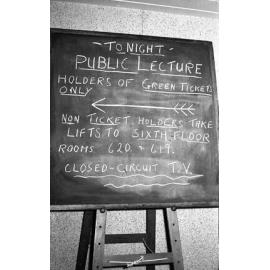 - TONIGHT -
PUBLIC LECTURE
HOLDERS OF GREEN TICKETS
ONLY
NON TICKET HOLDERS TAKE
LIFTS TO SIXTH FLOOR
ROOMS 620. & 619.
CLOSED-CIRCUIT T.V.